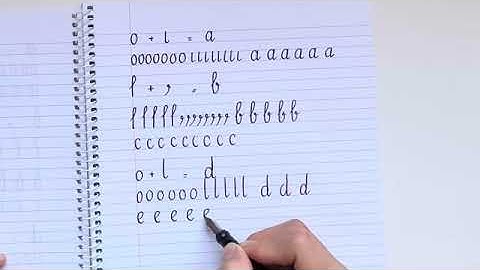 o + l = a
ooooooo llllllll a a a a a a
l + , = b
l l l l l , , , , , , , , b b b b b
c c c c c c c c c
o + l = d
o o o o o o l l l l l d d d
e e e e e